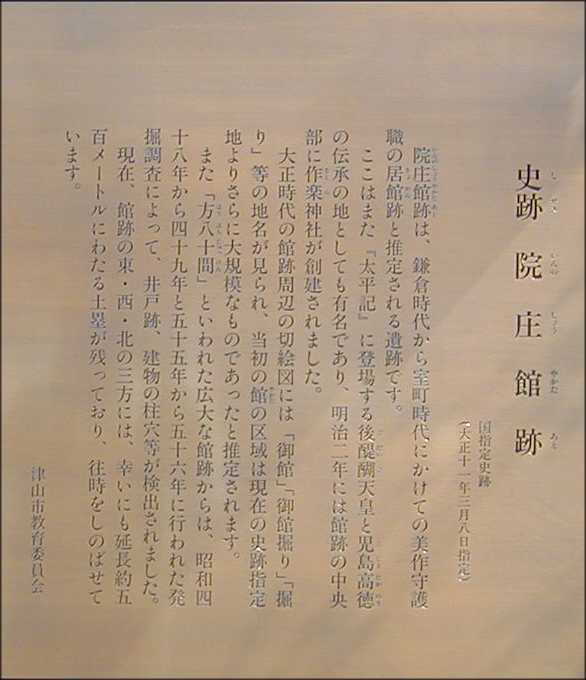 史跡 院庄館跡
国指定史跡
(大正十一年三月八日指定)
院庄館跡は、鎌倉時代から室町時代にかけての美作守護
職の居館跡と推定される遺跡です。
ここはまた『太平記』に登場する後醍醐天皇と児島高徳
の伝承の地としても有名であり、明治二年には館跡の中央
部に作楽神社が創建されました。
大正時代の館跡周辺の切絵図には「御館」「御館掘り」「掘
り」等の地名が見られ、当初の館の区域は現在の史跡指定
地よりさらに大規模なものであったと推定されます。
また「方八十間」といわれた広大な館跡からは、昭和四
十八年から四十九年と五十五年から五十六年に行われた発
掘調査によって、井戸跡、建物の柱穴等が検出されました。
現在、館跡の東・西・北の三方には、幸いにも延長約五
百メートルにわたる土塁が残っており、往時をしのばせて
います。
津山市教育委員会